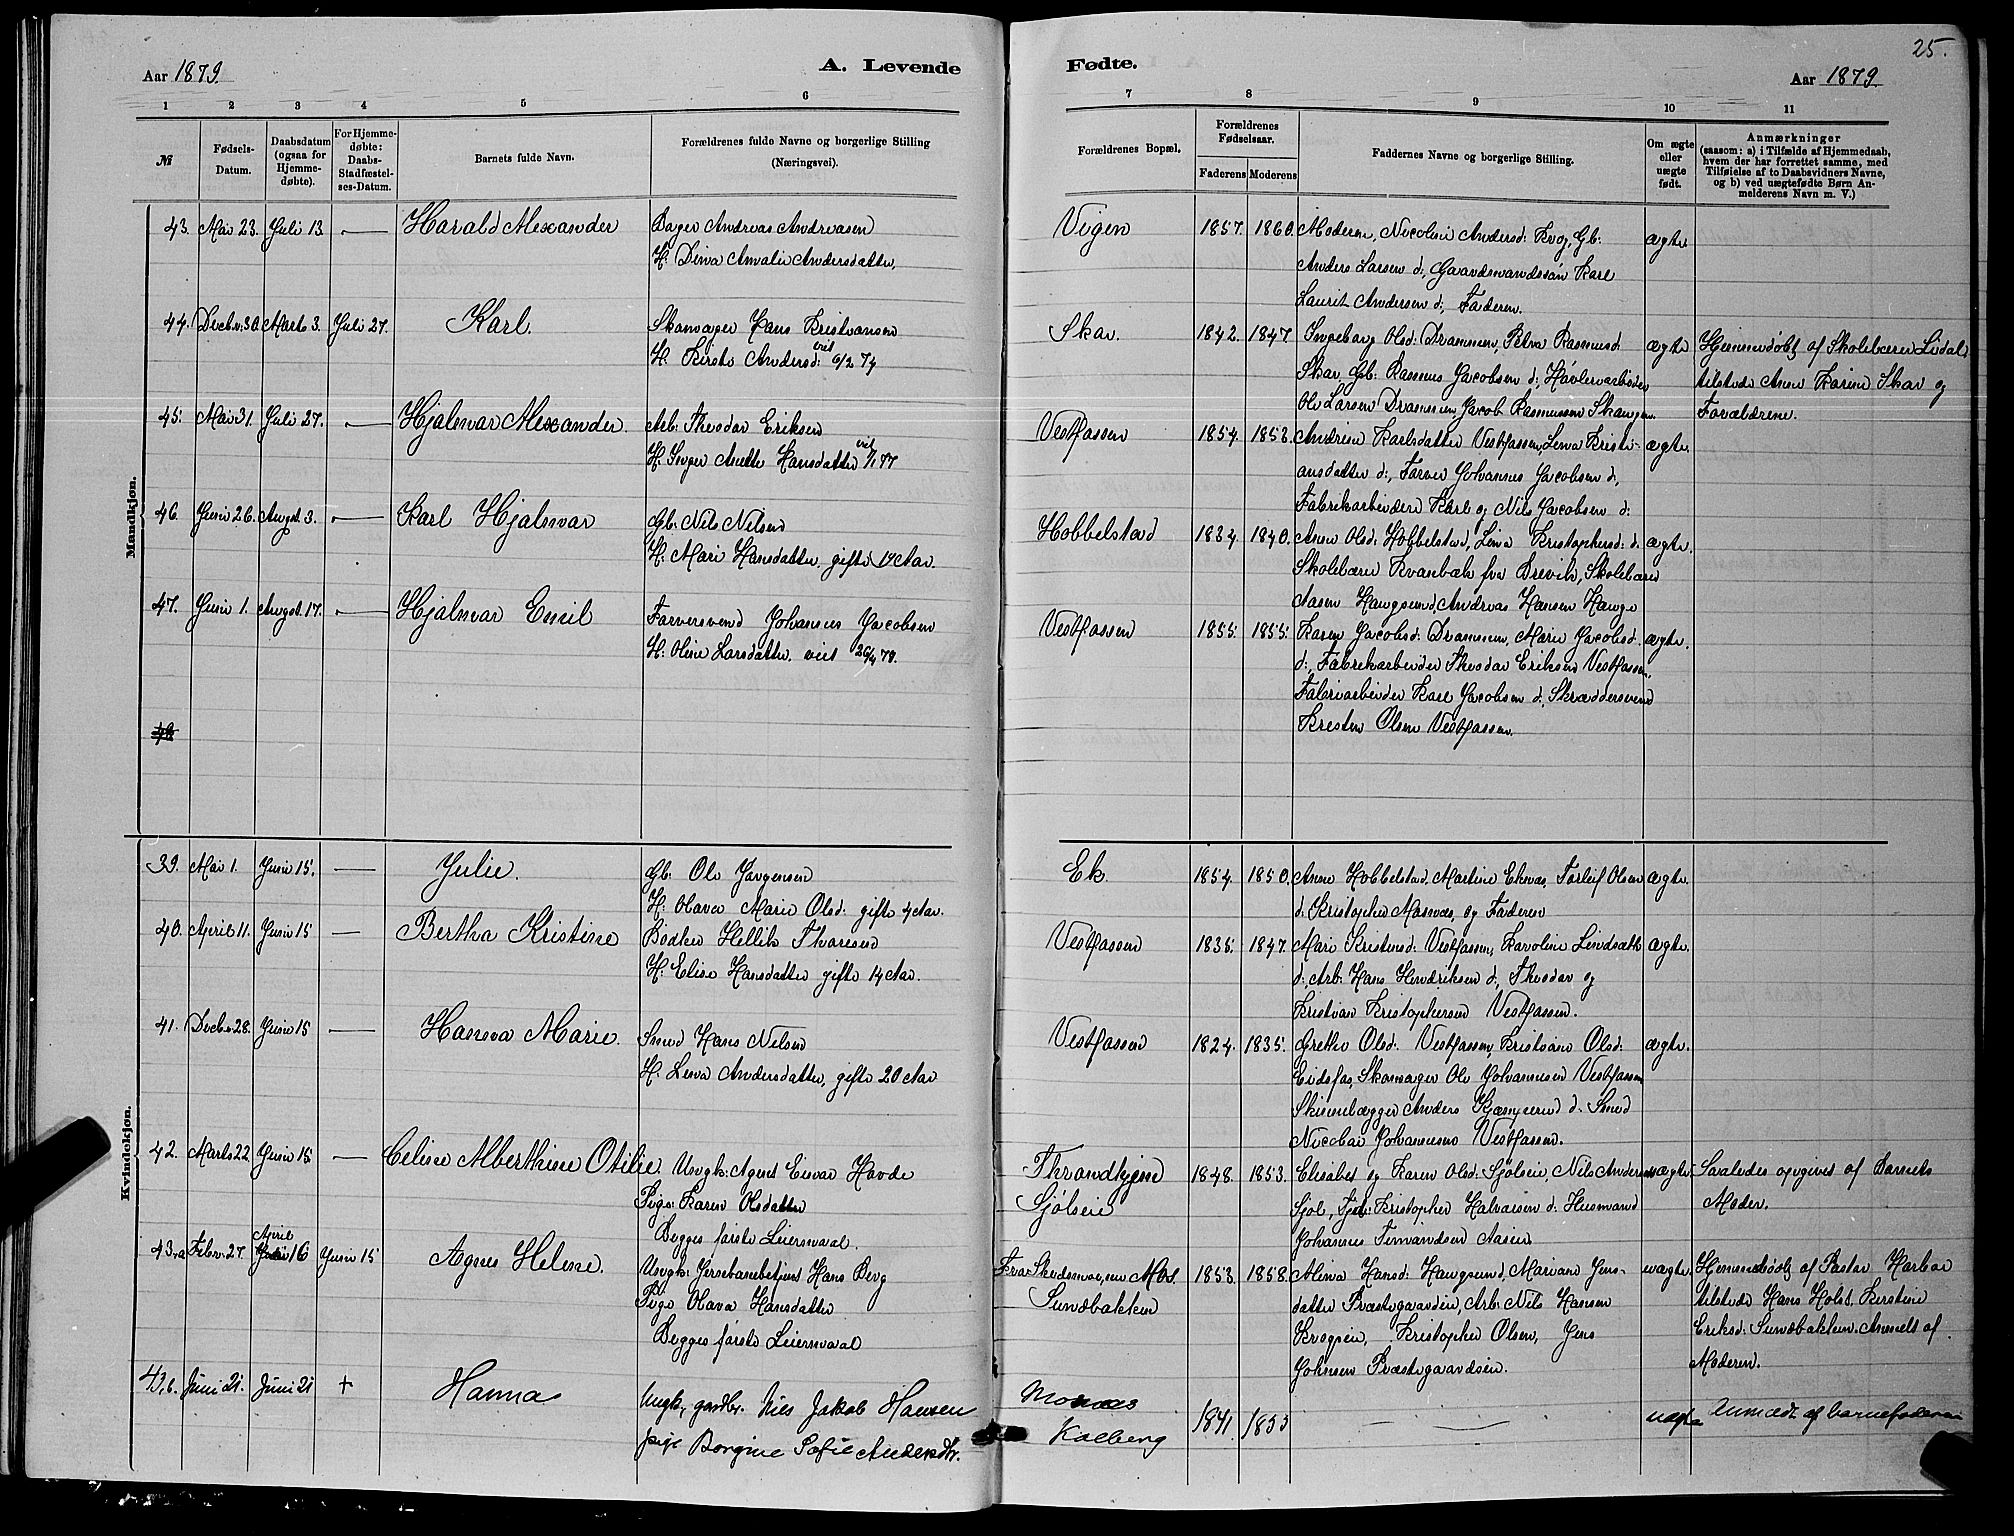 25.
Aar 1879. A. Levende Fødte. Aar 1879.
1 2 3 4 5 6 7 8 9 10 11
№
Fødsels-Datum.
Daabsdatum (ogsaa for Hjemme-døbte).
For Hjemme-døbte: Daabs-Stadfæstel-ses-Datum.
Barnets fulde Navn.
Forældrenes fulde Navne og borgerlige Stilling
(Næringsvei).
Forældrenes Bopæl.
Forældrenes Fødselsaar.
Faderens Moderens
Faddernes Navne og borgerlige Stilling.
Om ægte eller uægte født.
Anmærkninger
(saasom: a) i Tilfælde af Hjemmedaab,
hvem der har forrettet samme, med
Tilføielse af to Daabsvidners Navne,
og b) ved uægtefødte Børn An-
melderens Navn m. V.)
Mandkjøn.
43. Mai 23. Juli 13. — Harald Alexander Bager Andreas Andreasen Vigen 1857. 1860. Moderen, Nicoline Andersd: Krog, Gb: ægte
H: Dina Amalie Andersdatter, Anders Larsen d:, Gaardmandssøn Karl
Laurit Andersen d:, Faderen.
44. Decbr. 30. Marts 3. Juli 27. Karl. Skomager Hans Kristiansen Skar. 1842. 1847 Ingeborg Olsd: Drammen, Petra Rasmusd: ægte Hjemmedøbt af Skolelærer Lidal
H: Kirsti Andersd: viet 6/2 74 Skar, Gb: Rasmus Jacobsen d:, Høvleriarbeider tilstede Anne Karine Skar og
Ole Larsen Drammen, Jacob Rasmussen Skaugen. Forældrene.
45. Mai 31. Juli 27. — Hjalmar Alexander Arb. Theodor Eriksen Vestfossen 1854. 1853. Andrine Karlsdatter Vestfossen, Lina Kristi- ægte.
H: Inger Anette Hansdatter viet 1/1 77 ansdatter d:, Farver Johannes Jacobsen d:,
Fabrikarbeidere Karl og Nils Jacobsen d:
46. Juni 26. Augst. 3. — Karl Hjalmar Gb: Nils Nilsen Hobbelstad 1834. 1840. Anne Olsd: Hobbelstad, Lina Kristophersd: d: ægte.
H: Mari Hansdatter, gifte Skolelærer Kvanbæk fra Brevik, Skolelærer
Aasen Haugsund, Andreas Hansen Hauge
47. Juni 1. Augst. 17. — Hjalmar Emil Farversvend Johannes Jacobsen Vestfossen 1855. 1855. Karen Jacobsd: Drammen, Marie Jacobsd. ægte.
H: Oline Larsdatter. viet 26/4 78. d:, Fabrikarbeider Theodor Eriksen Vestfossen,
Fabrikarbeider Karl Jacobsen d:, Skræddersvend
48 Kristen Olsen Vestfossen.
Kvindekjøn.
39. Mai 1. Juni 15. — Julie. Gb: Ole Jørgensen Ek 1854. 1850. Anne Hobbelstad, Martine Eknæs, Torleif Olsen ægte.
H: Olava Marie Olsd: gifte 4 Aar. d:, Kristopher Masnæs, og Faderen
40. April 11. Juni 15 — Bertha Kristine Bødker Hellik Thoresen Vestfossen 1835. 1847. Mari Kristensd: Vestfossen, Karoline Lindsæth ægte.
H: Elise Hansdatter gifte 14 Aar. d:, Arb. Hans Hendriksen d:, Theodor og
Kristian Kristophersen Vestfossen.
41. Decbr. 28. Juni 15 — Hanna Marie. Smed Hans Nilsen Vestfossen 1824. 1835. Grethe Olsd: Vestfossen, Kristiane Olsd: ægte.
H: Lena Andersdatter, gifte 20 Aar Eidsfos, Skomager Ole Johannesen Vestfossen
Skinnelægger Anders d: Smed
Nicolai Johannesen Vestfossen.
42. Marts 22 Juni 15 — Celine Alberthine Otilie. Ungk: Agent Einar Hovde Thrandhjem 1848. 1853. Elisabet og Karen Olsd: Sjølseie, Nils Andersen uægte. Saaledes opgivet af Barnets
Pige Karen Olsdatter Sjølseie Sjøl, Tjgk: Kristopher Halvorsen d: Husmand Moder.
Begges første Leiermaal. Johannes Simondsen Aasen
43.a Febr. 27. April 16 Juni 15 Agnes Helene. Ungk: Jernbanebetjent Hans Berg Fra Skedsmo, nu Mos. 1853. 1858. Alina Hansd: Haugsund, Mariane Jens- uægte. Hjemmedøbt af Pastor Harboe
Pige Olava Hansdatter Sundbakken datter Præstegaardseie, Arb. Nils Hansen tilstede Hans Holst, Kirstine
Begges første Leiermaal Krogseie, Kristopher Olsen, Jens Eriksd: Sundbakken. Anmeldt af
Johnsen Præstegaardseie. Moderen.
43,b. Juni 21. Juni 21 + Hanna Ungk, gardbr. Nils Jakob Hansen Monæs 1841. 1853 — — uægte Anmeldt af barnefaderen
pige Borgine Sofie Andersdtr. Kolberg